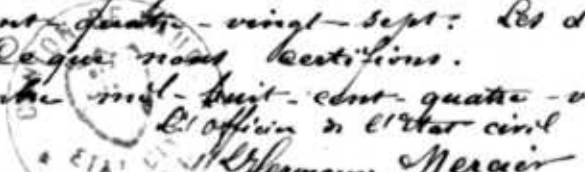 quatre-vingt-sept. Les
Ce que nous certifions.
mil-huit-cent-quatre-v
L'officier de l'Etat civil
Hermann Mercier